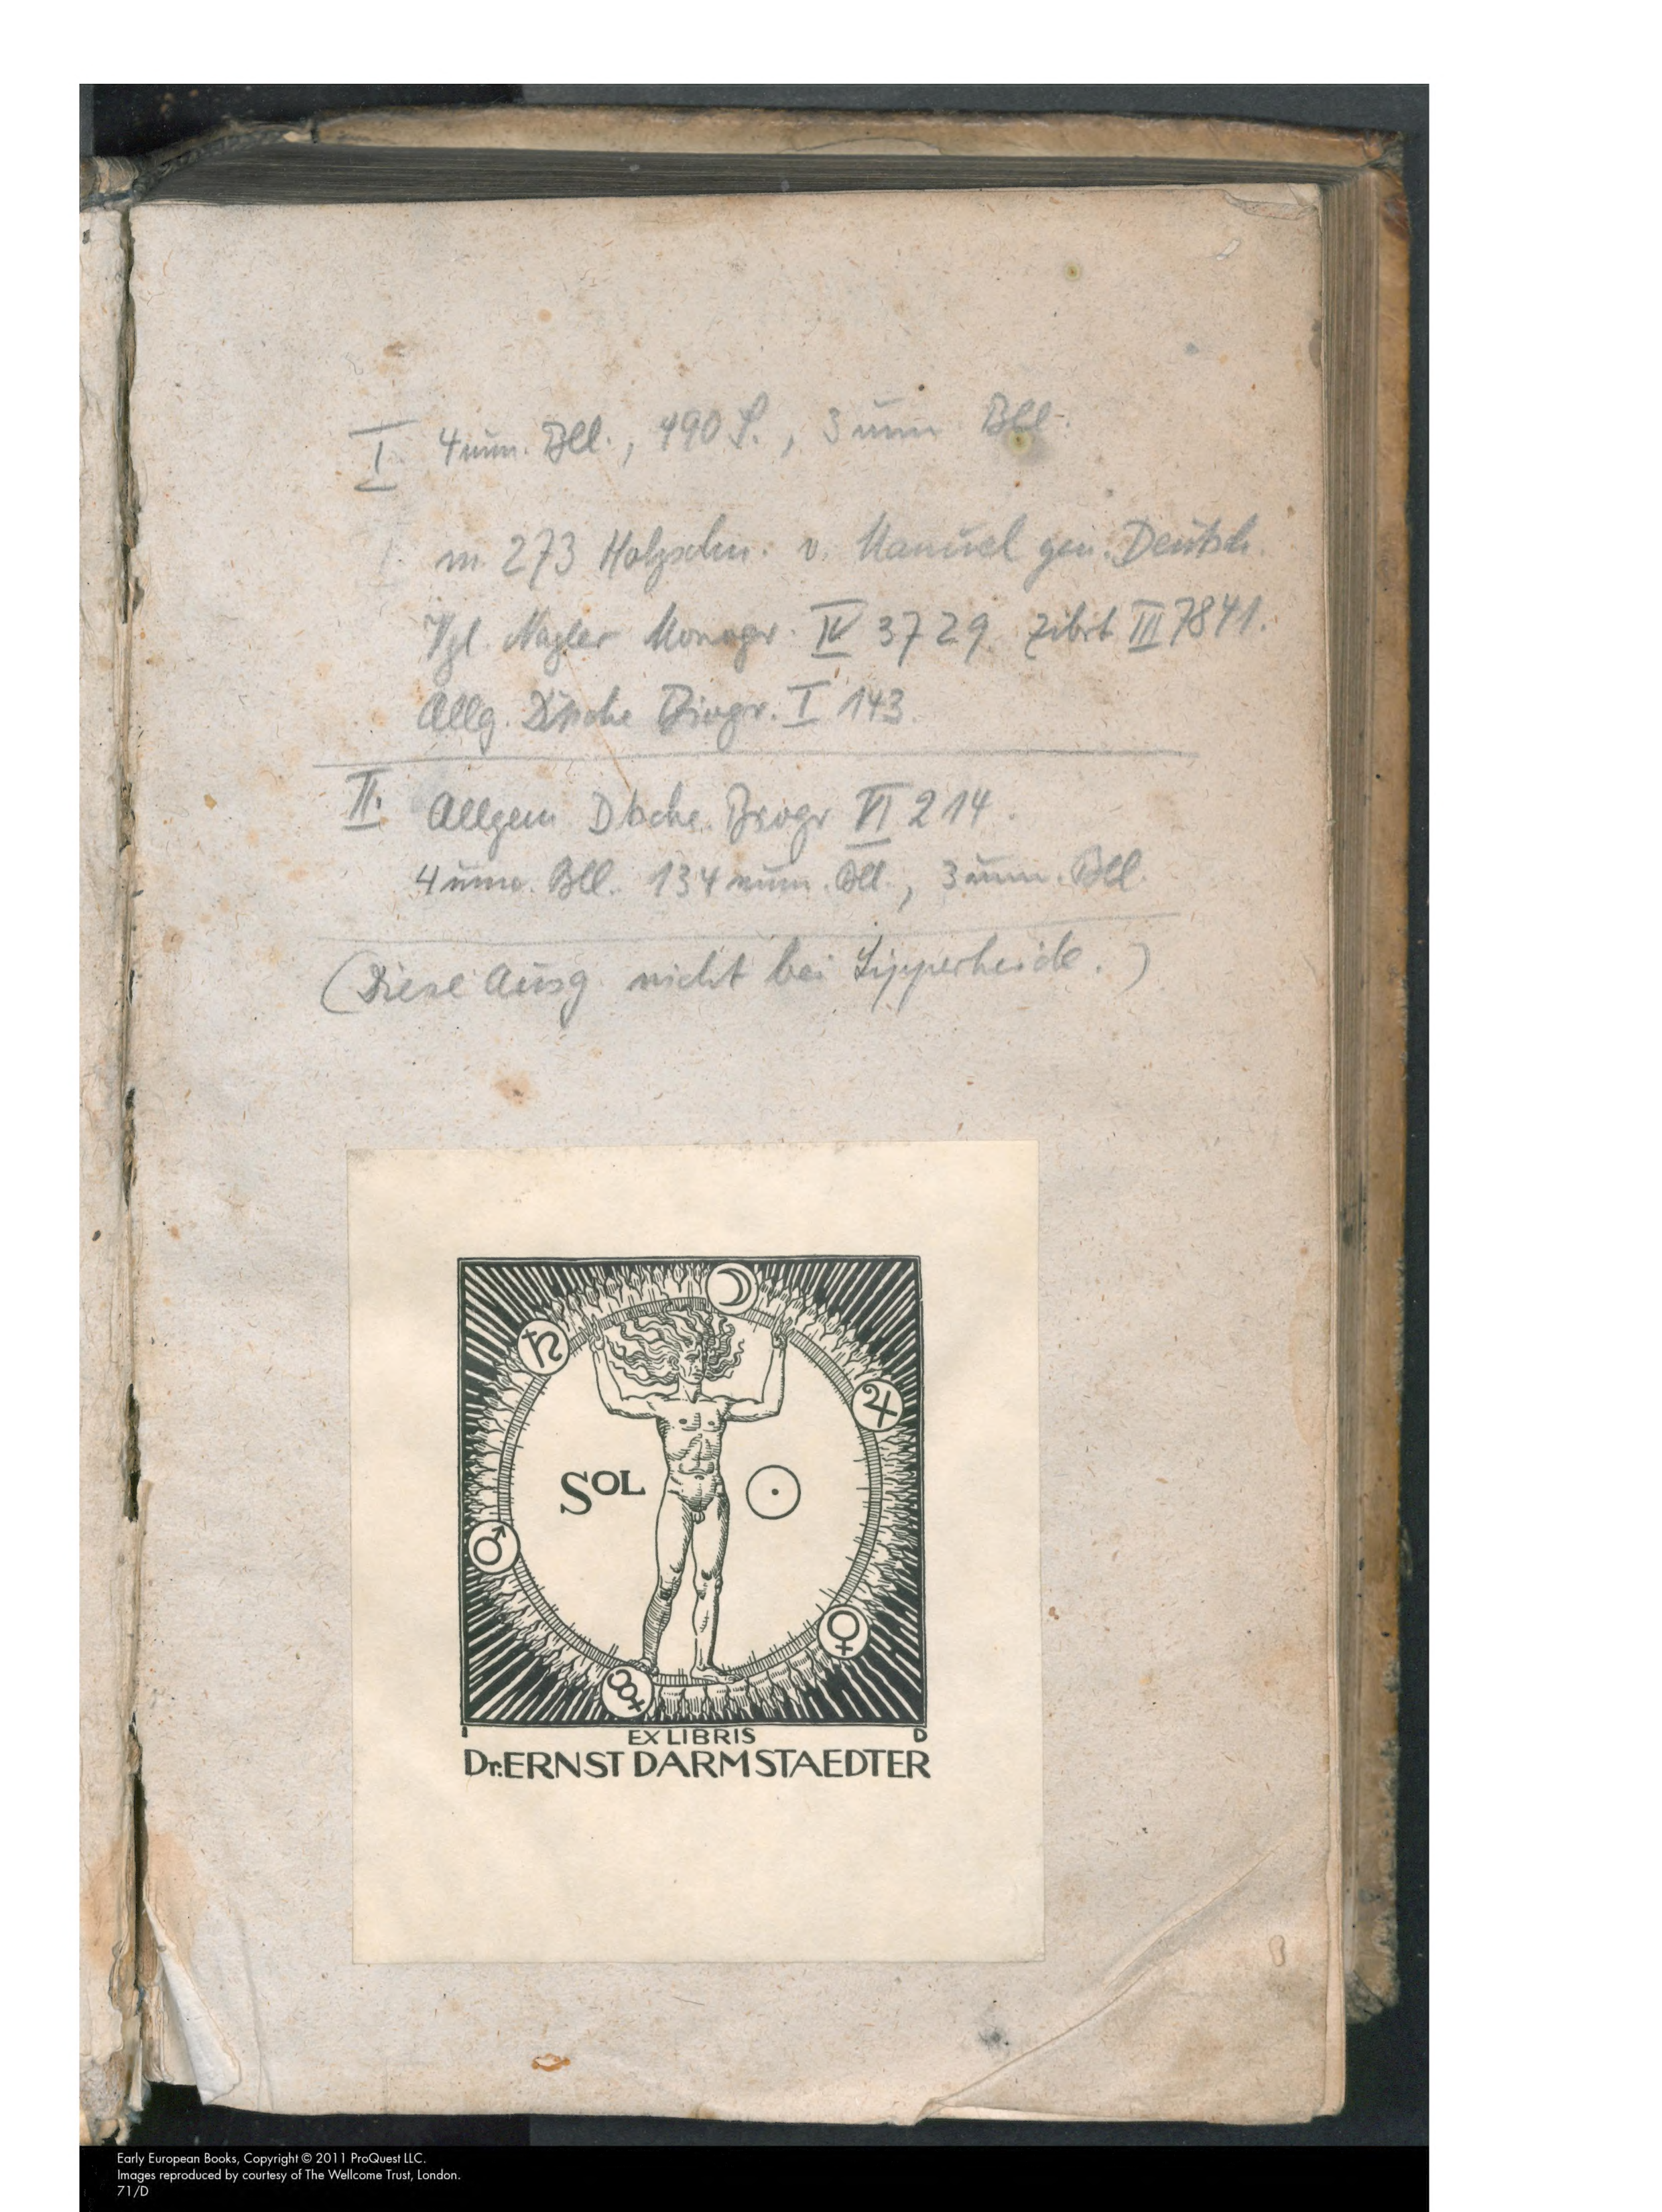 I 4 unn. Bll., 490 S., 3 unn Bll.
m. 273 Holzschn. v. Manuel gen. Deutsch.
Vgl. Nagler Monogr. IV 3729. Zibrt III 7841.
Allg. Dtsche Biogr. I 143.
II. Allgem Dtsche. Biogr VI 214.
4 unn. Bll. 134 num. Bll., 3 unn. Bll
(Diese Ausg nicht bei Lipperheide.)
SOL
EX LIBRIS
D
Dr. ERNST DARMSTAEDTER
Early European Books, Copyright © 2011 ProQuest LLC.
Images reproduced by courtesy of The Wellcome Trust, London.
71/D